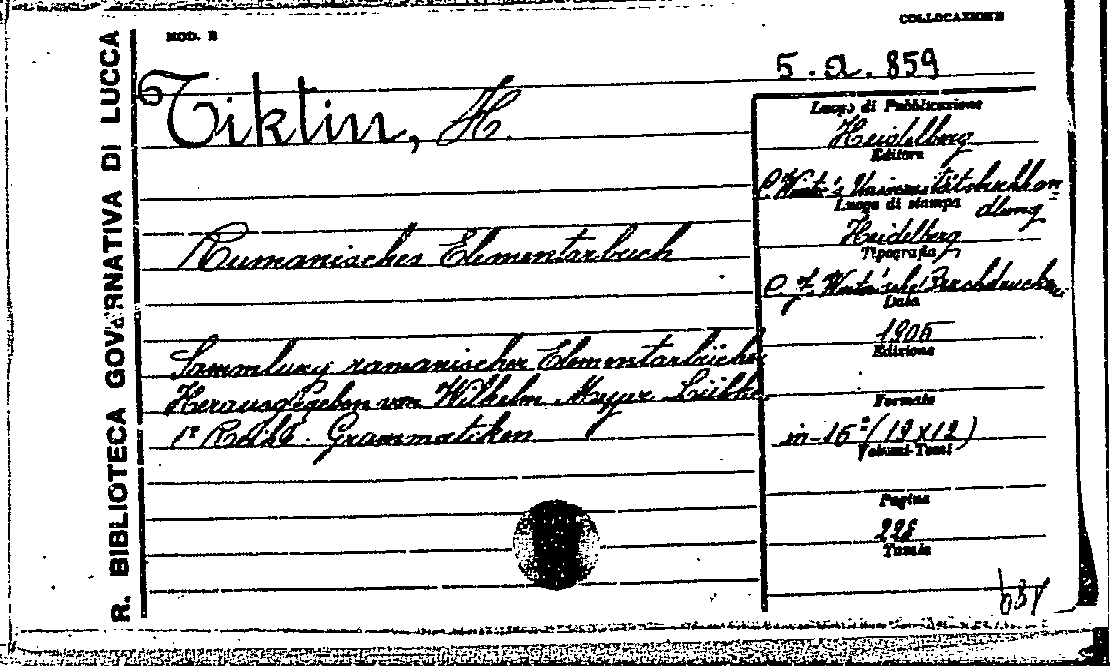 MOD. B
COLLOCAZIONE
R. BIBLIOTECA GOVERNATIVA DI LUCCA
5. a. 859
Tiktin, H.
Rumanisches Elementarbuch
Sammlung romanischer Elementarbücher
Herausgegeben von Wilhelm Meyer Lübke.
1e Reihe. Grammatiken
Luogo di Pubblicazione
Heidelberg
Editore
C. Winter's Universitätsbuchhan=
dlung
Luogo di stampa
Heidelberg
Tipografia
C. F. Winter'sche Buchdruckerei
Data
1905
Edizione
Formato
in-16º (19x12)
Volumi-Tomi
Pagine
228
Tavole